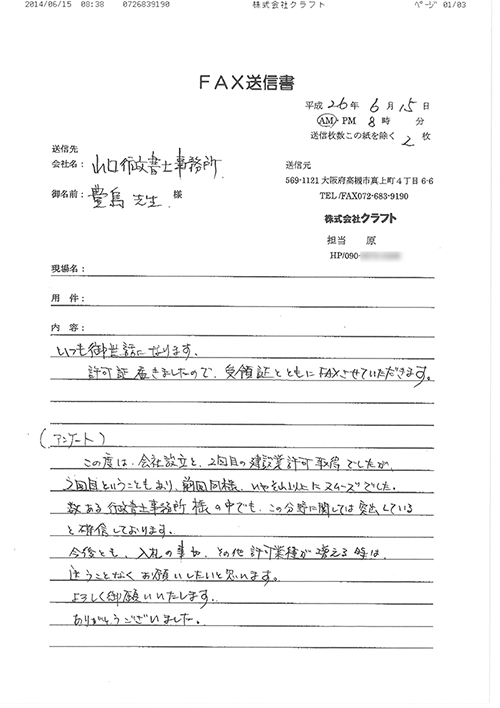 2014/06/15 08:38 0726839190 株式会社クラフト ページ 01/03
FAX送信書
平成 26年 6月 15日
AM・PM 8時 分
送信枚数この紙を除く 2 枚
送信先
会社名: 山口行政書士事務所
御名前: 豊島 先生. 様
送信元
569-1121 大阪府高槻市真上町4丁目6-6
TEL/FAX072-683-9190
株式会社クラフト
担当 原
HP/090-
現場名:
用件:
内容:
いつも御世話になります。
許可証届きましたので、受領証とともにFAXさせていただきます。
(アンケート)
この度は、会社設立と、2回目の建設業許可取得でしたが、
2回目ということもあり、前回同様、いやそれ以上にスムーズでした。
数ある行政書士事務所様の中でも、この分野に関しては突出している
と確信しております。
今後とも、入札の事や、その他許可業種が増える時は、
迷うことなくお願いしたいと思います。
よろしく御願いいたします。
ありがとうございました。